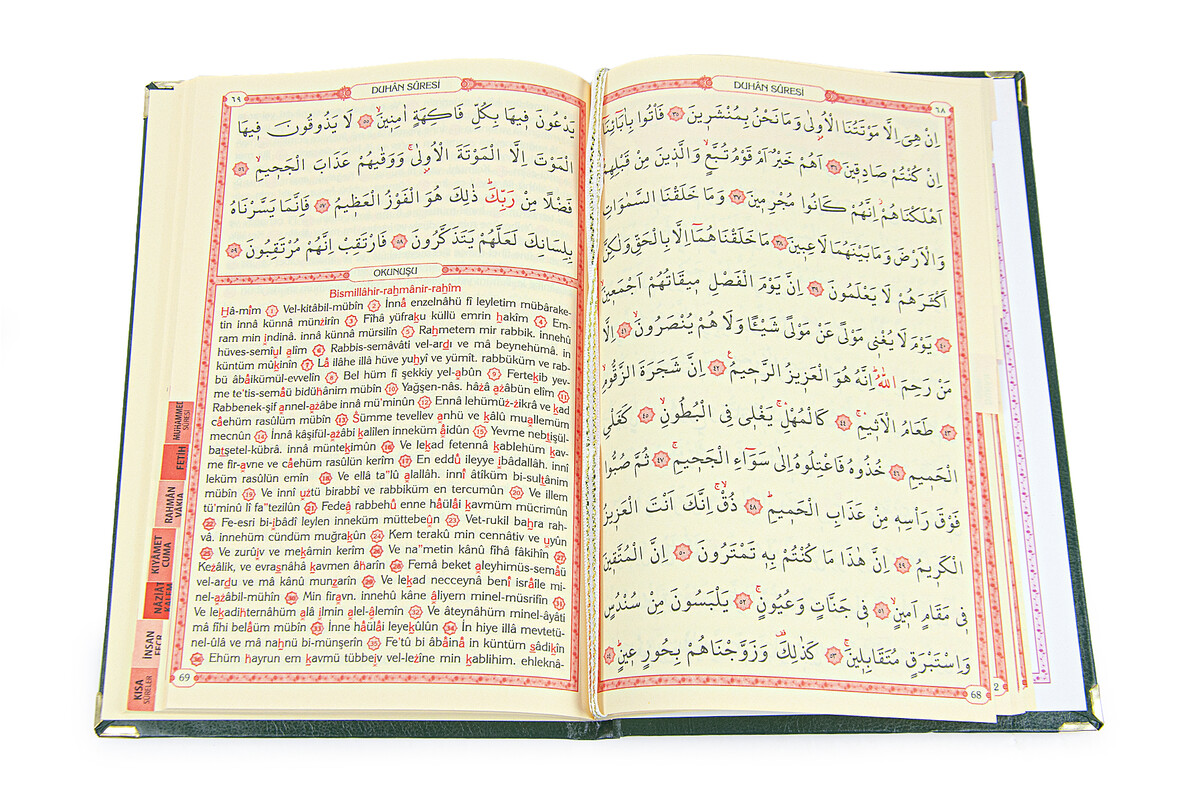 DUHÂN SÛRESİ
٦٨
اِنْ هِىَ اِلَّا مَوْتَتُنَا الْاُولٰى وَمَا نَحْنُ بِمُنْشَرٖينَ ٣٥ فَأْتُوا بِاٰبَٓائِنَٓا
اِنْ كُنْتُمْ صَادِقٖينَ ٣٦ اَهُمْ خَيْرٌ اَمْ قَوْمُ تُبَّعٍ وَالَّذٖينَ مِنْ قَبْلِهِمْ
اَهْلَكْنَاهُمْ اِنَّهُمْ كَانُوا مُجْرِمٖينَ ٣٧ وَمَا خَلَقْنَا السَّمٰوَاتِ
وَالْاَرْضَ وَمَا بَيْنَهُمَا لَاعِبٖينَ ٣٨ مَا خَلَقْنَاهُمَٓا اِلَّا بِالْحَقِّ وَلٰكِنَّ
اَكْثَرَهُمْ لَا يَعْلَمُونَ ٣٩ اِنَّ يَوْمَ الْفَصْلِ مٖيقَاتُهُمْ اَجْمَعٖينَ
٤٠ يَوْمَ لَا يُغْنٖى مَوْلًى عَنْ مَوْلًى شَيْـًٔا وَلَا هُمْ يُنْصَرُونَ ٤١ اِلَّا
مَنْ رَحِمَ اللّٰهُ اِنَّهُ هُوَ الْعَزٖيزُ الرَّحٖيمُ ٤٢ اِنَّ شَجَرَةَ الزَّقُّومِ
٤٣ طَعَامُ الْاَثٖيمِ ٤٤ كَالْمُهْلِ يَغْلٖى فِى الْبُطُونِ ٤٥ كَغَلْىِ
الْحَمٖيمِ ٤٦ خُذُوهُ فَاعْتِلُوهُ اِلٰى سَوَٓاءِ الْجَحٖيمِ ٤٧ ثُمَّ صُبُّوا
فَوْقَ رَأْسِهٖ مِنْ عَذَابِ الْحَمٖيمِ ٤٨ ذُقْ اِنَّكَ اَنْتَ الْعَزٖيزُ
الْكَرٖيمُ ٤٩ اِنَّ هٰذَا مَا كُنْتُمْ بِهٖ تَمْتَرُونَ ٥٠ اِنَّ الْمُتَّقٖينَ
فٖى مَقَامٍ اَمٖينٍ ٥١ فٖى جَنَّاتٍ وَعُيُونٍ ٥٢ يَلْبَسُونَ مِنْ سُنْدُسٍ
وَاِسْتَبْرَقٍ مُتَقَابِلٖينَ ٥٣ كَذٰلِكَ وَزَوَّجْنَاهُمْ بِحُورٍ عٖينٍ ٥٤
68
2
DUHÂN SÛRESİ
٦٩
يَدْعُونَ فٖيهَا بِكُلِّ فَاكِهَةٍ اٰمِنٖينَ ٥٥ لَا يَذُوقُونَ فٖيهَا
الْمَوْتَ اِلَّا الْمَوْتَةَ الْاُولٰى وَوَقٰيهُمْ عَذَابَ الْجَحٖيمِ ٥٦
فَضْلًا مِنْ رَبِّكَ ذٰلِكَ هُوَ الْفَوْزُ الْعَظٖيمُ ٥٧ فَاِنَّمَا يَسَّرْنَاهُ
بِلِسَانِكَ لَعَلَّهُمْ يَتَذَكَّرُونَ ٥٨ فَارْتَقِبْ اِنَّهُمْ مُرْتَقِبُونَ ٥٩
OKUNUŞU
Bismillâhir-rahmânir-rahîm
Hâ-mîm 1 Vel-kitâbil-mübîn 2 İnnâ enzelnâhü fî leyletim mübârake-
tin innâ künnâ münzirîn 3 Fîhâ yüfraku küllü emrin hakîm 4 Em-
ram min indinâ. innâ künnâ mürsilîn 5 Rahmetem mir rabbik. innehû
hüves-semîul alîm 6 Rabbis-semâvâti vel-ardı ve mâ beynehümâ. in
küntüm mûkinîn 7 Lâ ilâhe illâ hüve yuhyî ve yümît. rabbüküm ve rab-
bü âbâikümül-evvelîn 8 Bel hüm fî şekkiy yel-abûn 9 Fertekib yev-
me te'tis-semâü bidühânim mübîn 10 Yağşen-nâs. hâzâ azâbün elîm 11
Rabbenek-şif annel-azâbe innâ mü'minûn 12 Ennâ lehümüz-zikrâ ve kad
câehüm rasûlüm mübîn 13 Sümme tevellev anhü ve kâlû muallemüm
mecnûn 14 İnnâ kâşifül-azâbi kalîlen inneküm âidûn 15 Yevme nebtişül-
batşetel-kübrâ. innâ müntekimûn 16 Ve lekad fetennâ kablehüm kav-
me fir-avne ve câehüm rasûlün kerîm 17 En eddû ileyye ibâdallâh. innî
leküm rasûlün emîn 18 Ve ellâ ta"lû alallâh. innî âtîküm bi-sultânim
mübîn 19 Ve innî uztü birabbî ve rabbiküm en tercumûn 20 Ve illem
tü'minû lî fa"tezilûn 21 Fedeâ rabbehû enne hâülâi kavmüm mücrimûn
22 Fe-esri bi-ıbâdî leylen inneküm müttebeûn 23 Vet-rukil bahra rah-
vâ. innehüm cündüm muğrakûn 24 Kem terakû min cennâtiv ve uyûn
25 Ve zurûıv ve mekâmin kerîm 26 Ve na"metin kânû fîhâ fâkihîn 27
Kezâlik, ve evrasnâhâ kavmen âharîn 28 Femâ beket aleyhimüs-semâü
vel-ardu ve mâ kânû munzarîn 29 Ve lekad necceynâ benî isrâîle mi-
nel-azâbil-mühîn 30 Min firavn. innehû kâne âliyem minel-müsrifîn 31
Ve lekadihternâhüm alâ ılmin alel-âlemîn 32 Ve âteynâhüm minel-âyâti
mâ fîhi belâüm mübîn 33 İnne hâülâi leyekûlûn 34 İn hiye illâ mevtetü-
nel-ûlâ ve mâ nahnü bi-münşerîn 35 Fe'tû bi âbâinâ in küntüm sâdikîn
36 Ehüm hayrun em kavmü tübbeıv vel-lezîne min kablihim. ehleknâ-
69
MUHAMMED
SÛRESİ
FETİH
RAHMÂN
VÂKIA
KIYAMET
CUMA
NÂZİÂT
İNSAN
KISA
SÛRELER